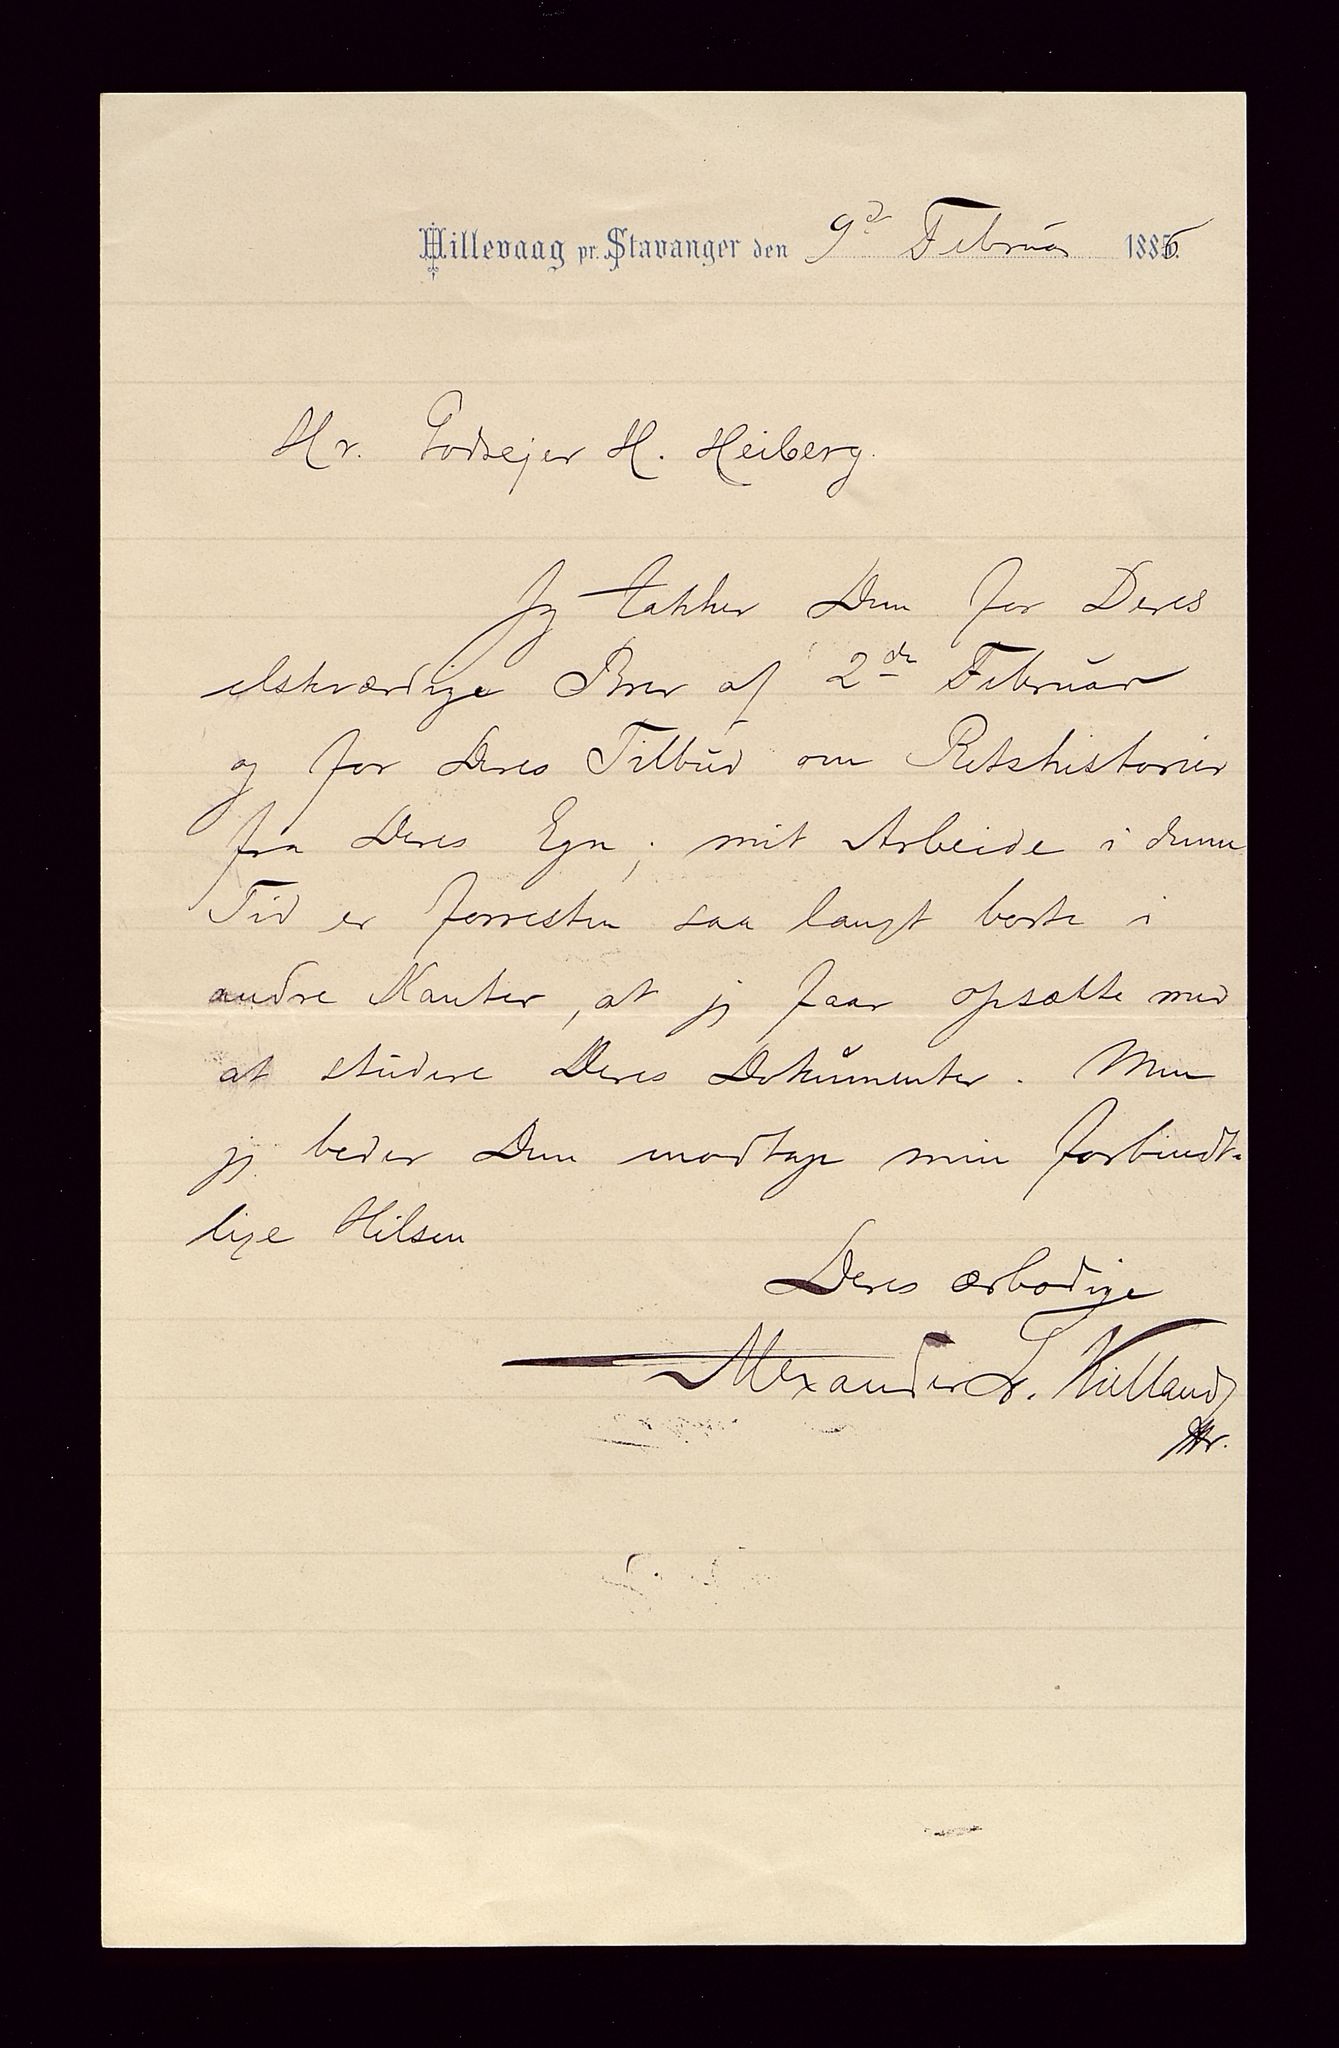 Hillevaag pr. Stavanger den 9de Februar 1886.
Hr. Godsejer H. Heiberg.
Jeg takker Dem for Deres
elskværdige Brev af 2den Februar
og for Deres Tilbud om Retshistorier
fra Deres Egn; mit Arbeide i denne
Tid er forresten saa langt borte i
andre Kanter, at jeg faar opsætte med
at studere Deres Dokumenter. Men
jeg beder Dem modtage min forbindt-
lige Hilsen
Deres ærbødige
Alexander L. Kielland